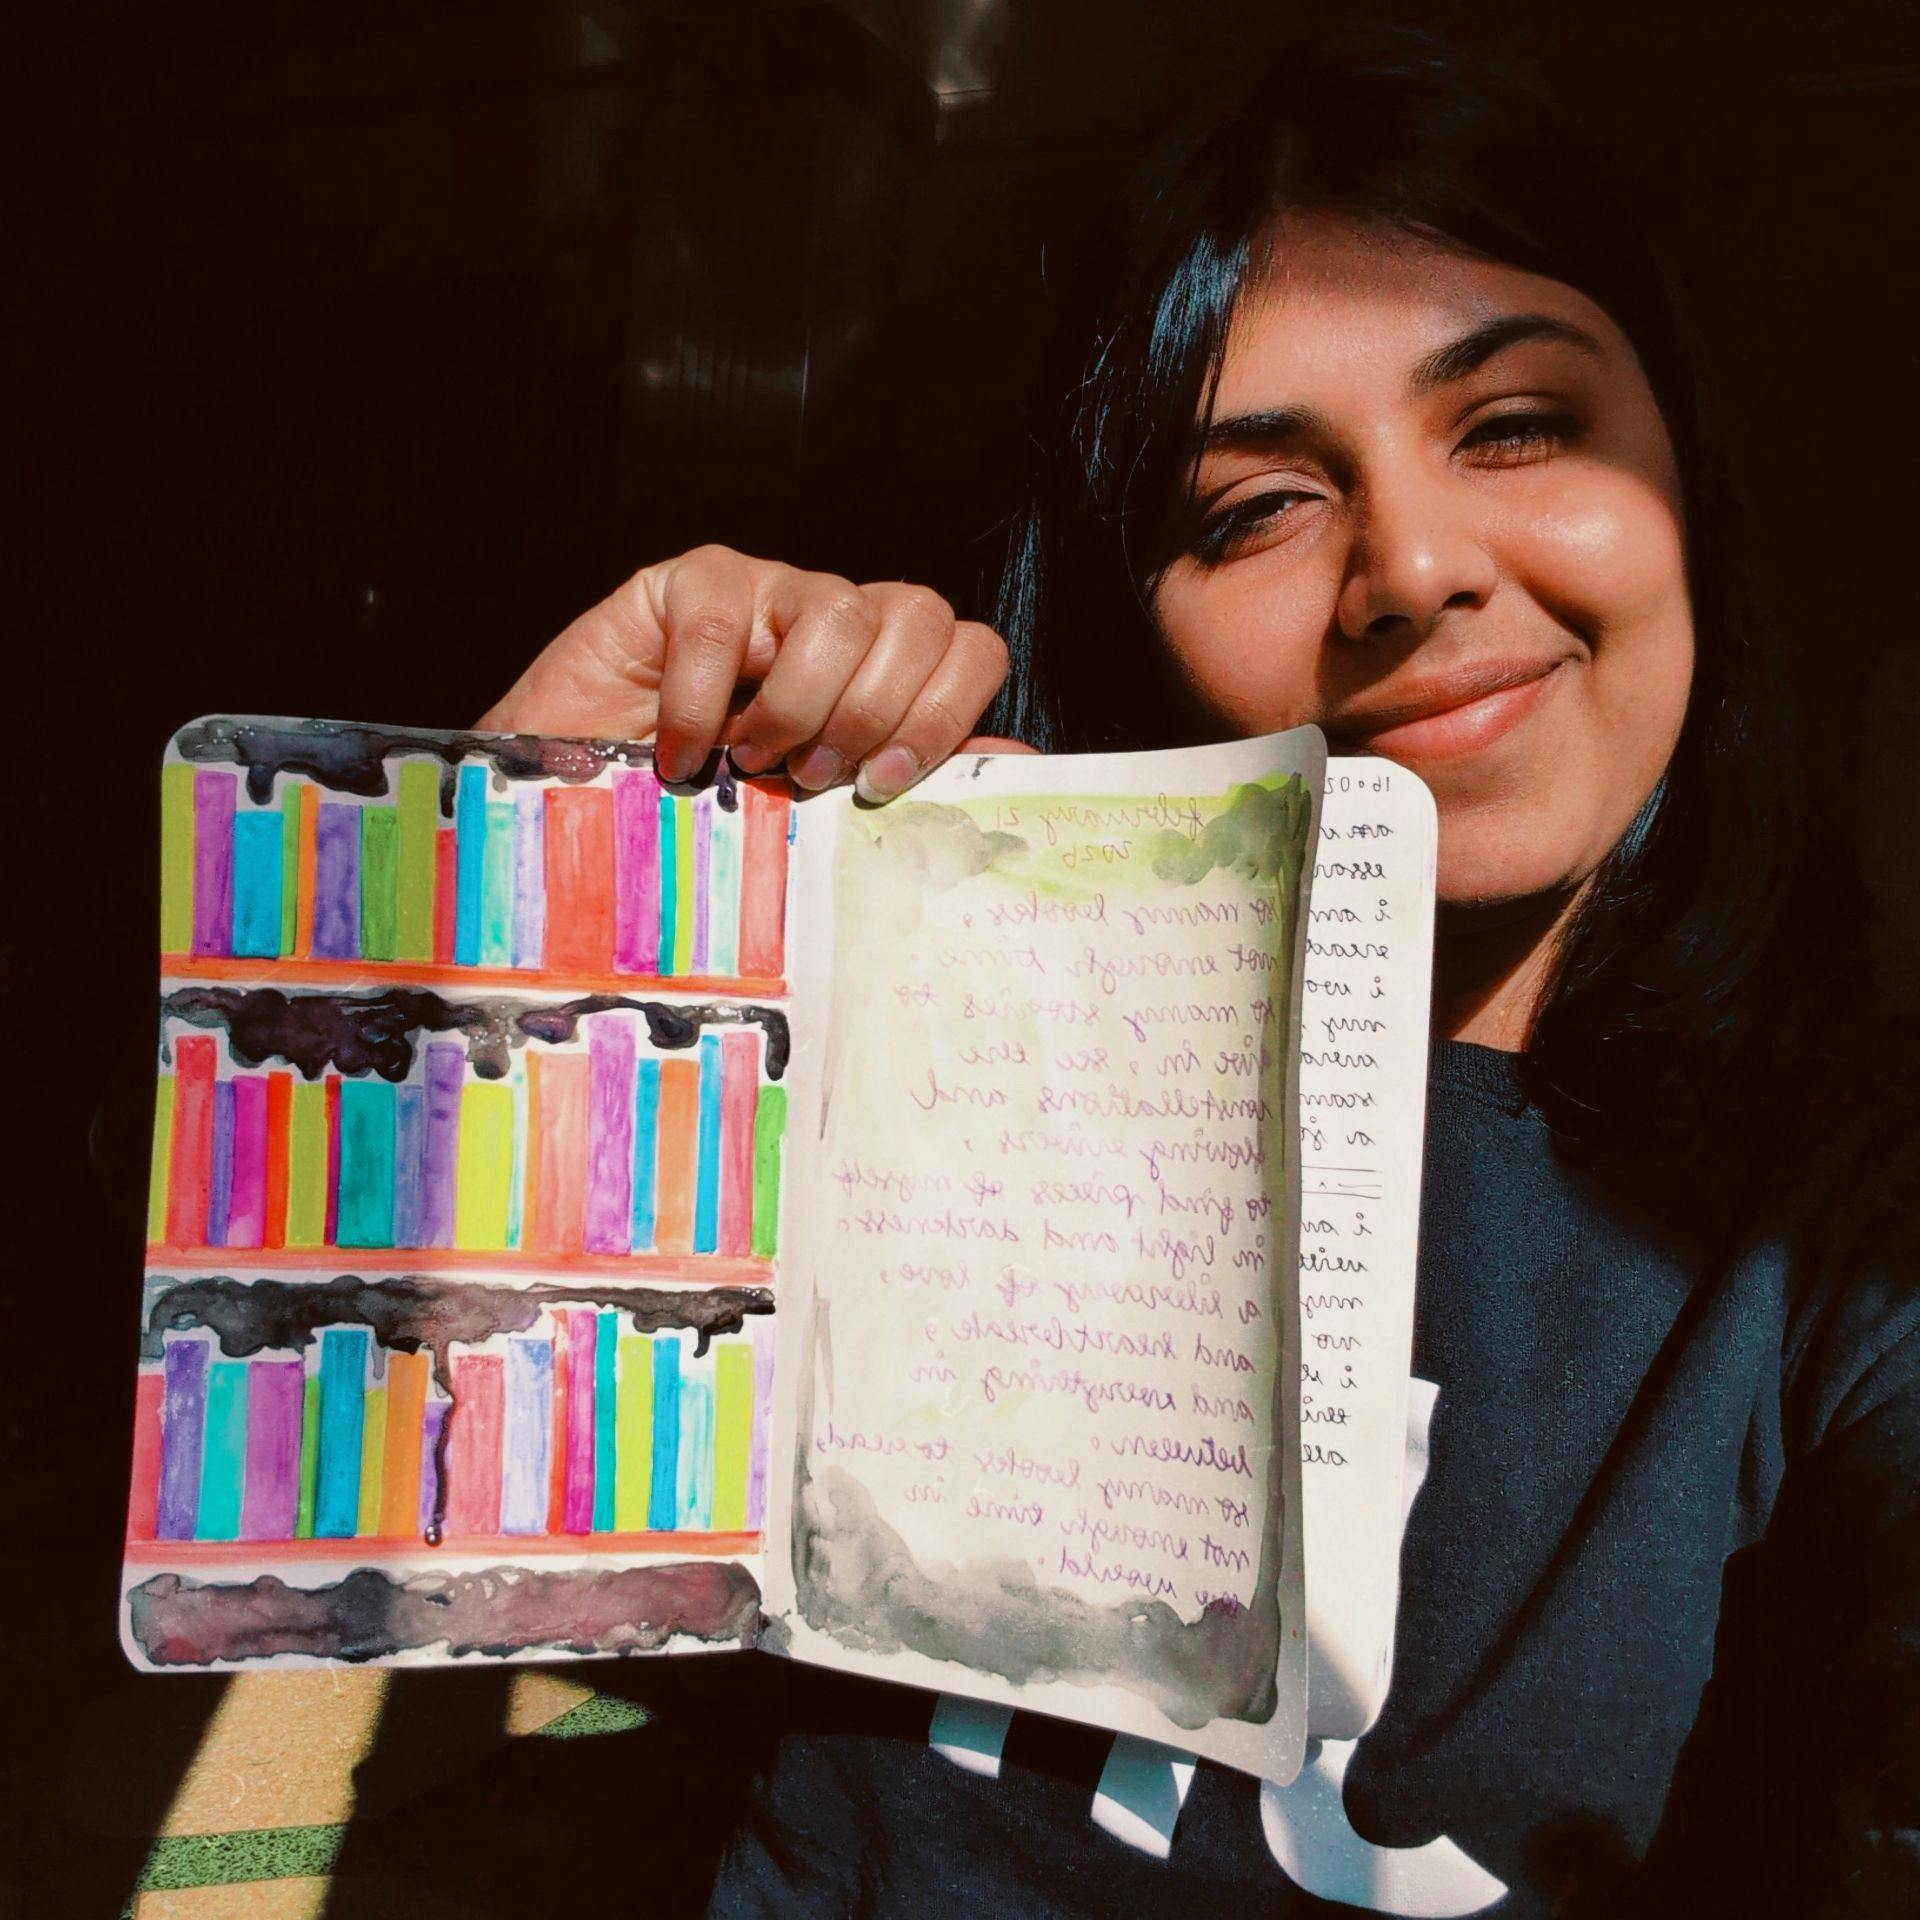 february 21
2026
so many books,
not enough time.
so many stories to
dive in, see the
constellations and
flowing rivers,
to find pieces of myself
in light and darkness.
a library of love,
and heartbreak,
and everything in
between.
so many books to read,
not enough time in
the world.
16:02
i am
my
a
i
my
no
i